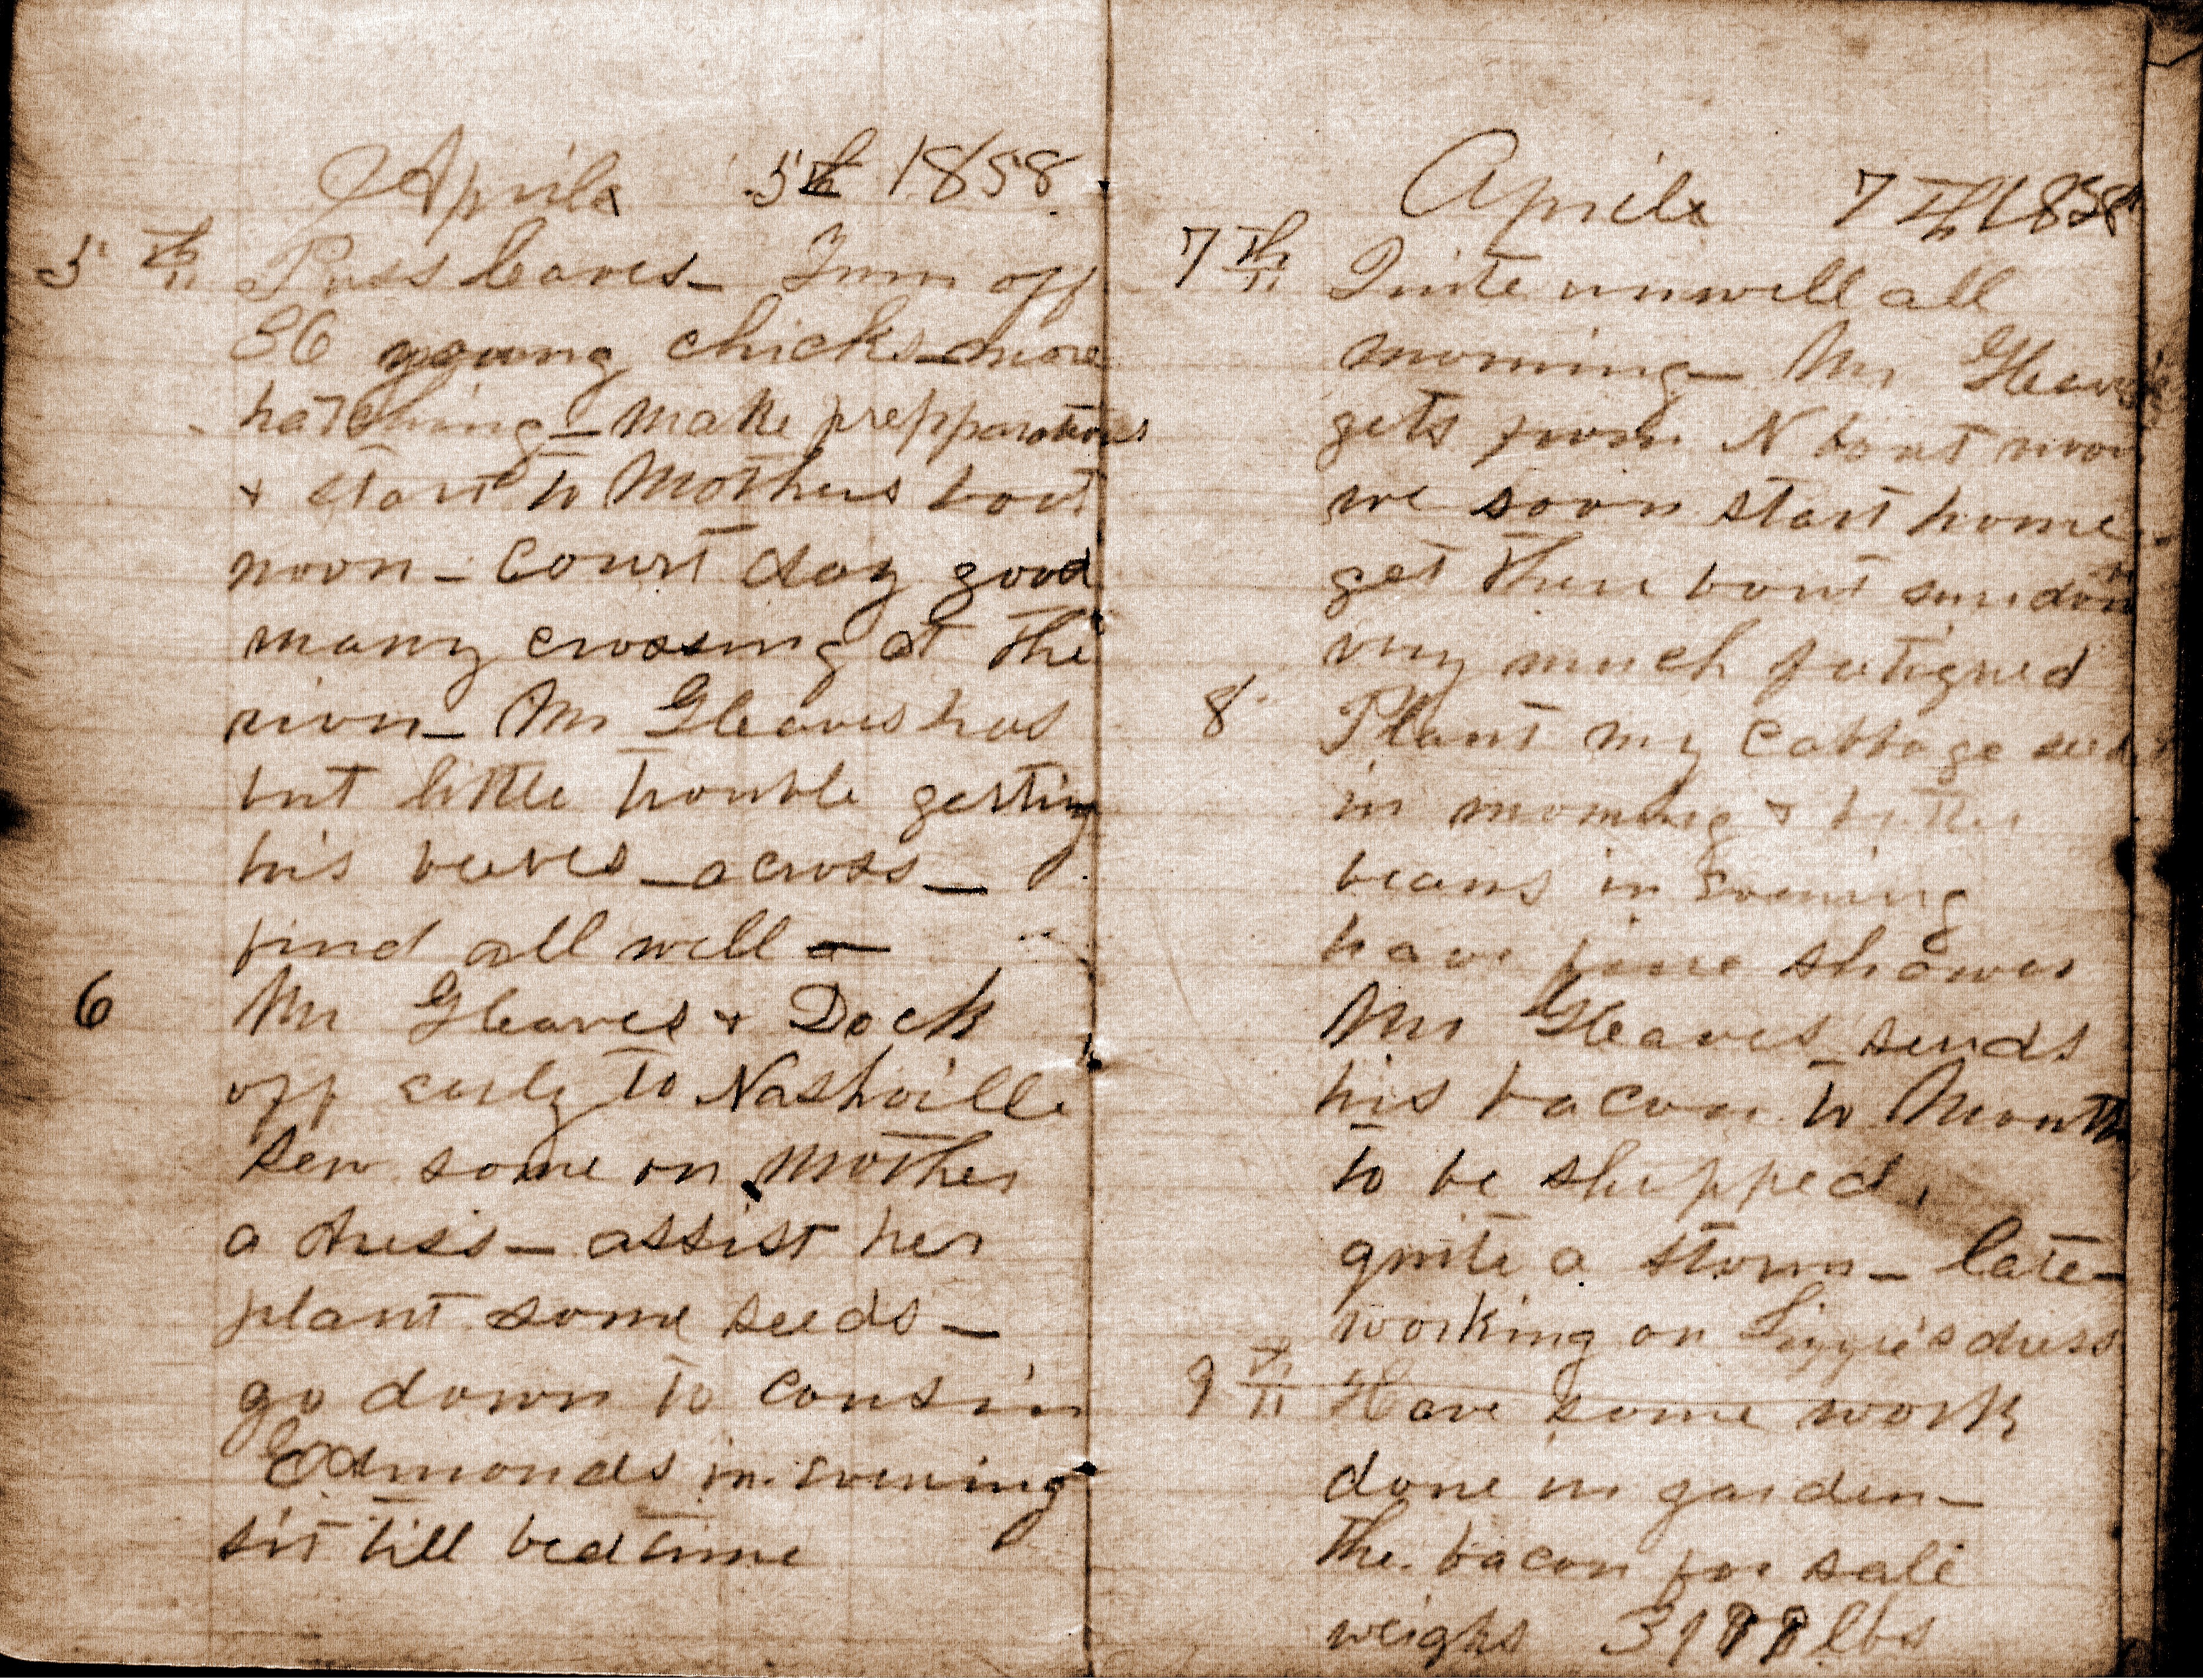 April 5th 1858
5th Puss leaves - Turn off
36 young chicks - more
hatching - make prepparations
+ start to Mothers bout
noon - Court day good
many crossing at the
river - Mr Gleaves has
but little trouble getting
his beeves - across -
find all well -
6 Mr Gleaves + Dock
off early to Nashville
Sew some on Mother
a dress - assist her
plant some seeds -
go down to cousin
Edmonds in evening
sit till bedtime
April 7th 1858
7th Quite unwell all
morning - Mr Gleaves
gets from N bout noon
we soon start home
get there bout sundown
very much fatigued
8 Plant my cabbage seed
in morning +
beans in evening
have fine shower
Mr Gleaves sends
his bacon to Mouth
to be shipped.
quite a storm - late -
working on Lizzie's dress
9th Have some work
done in garden -
the bacon for sale
weighs lbs